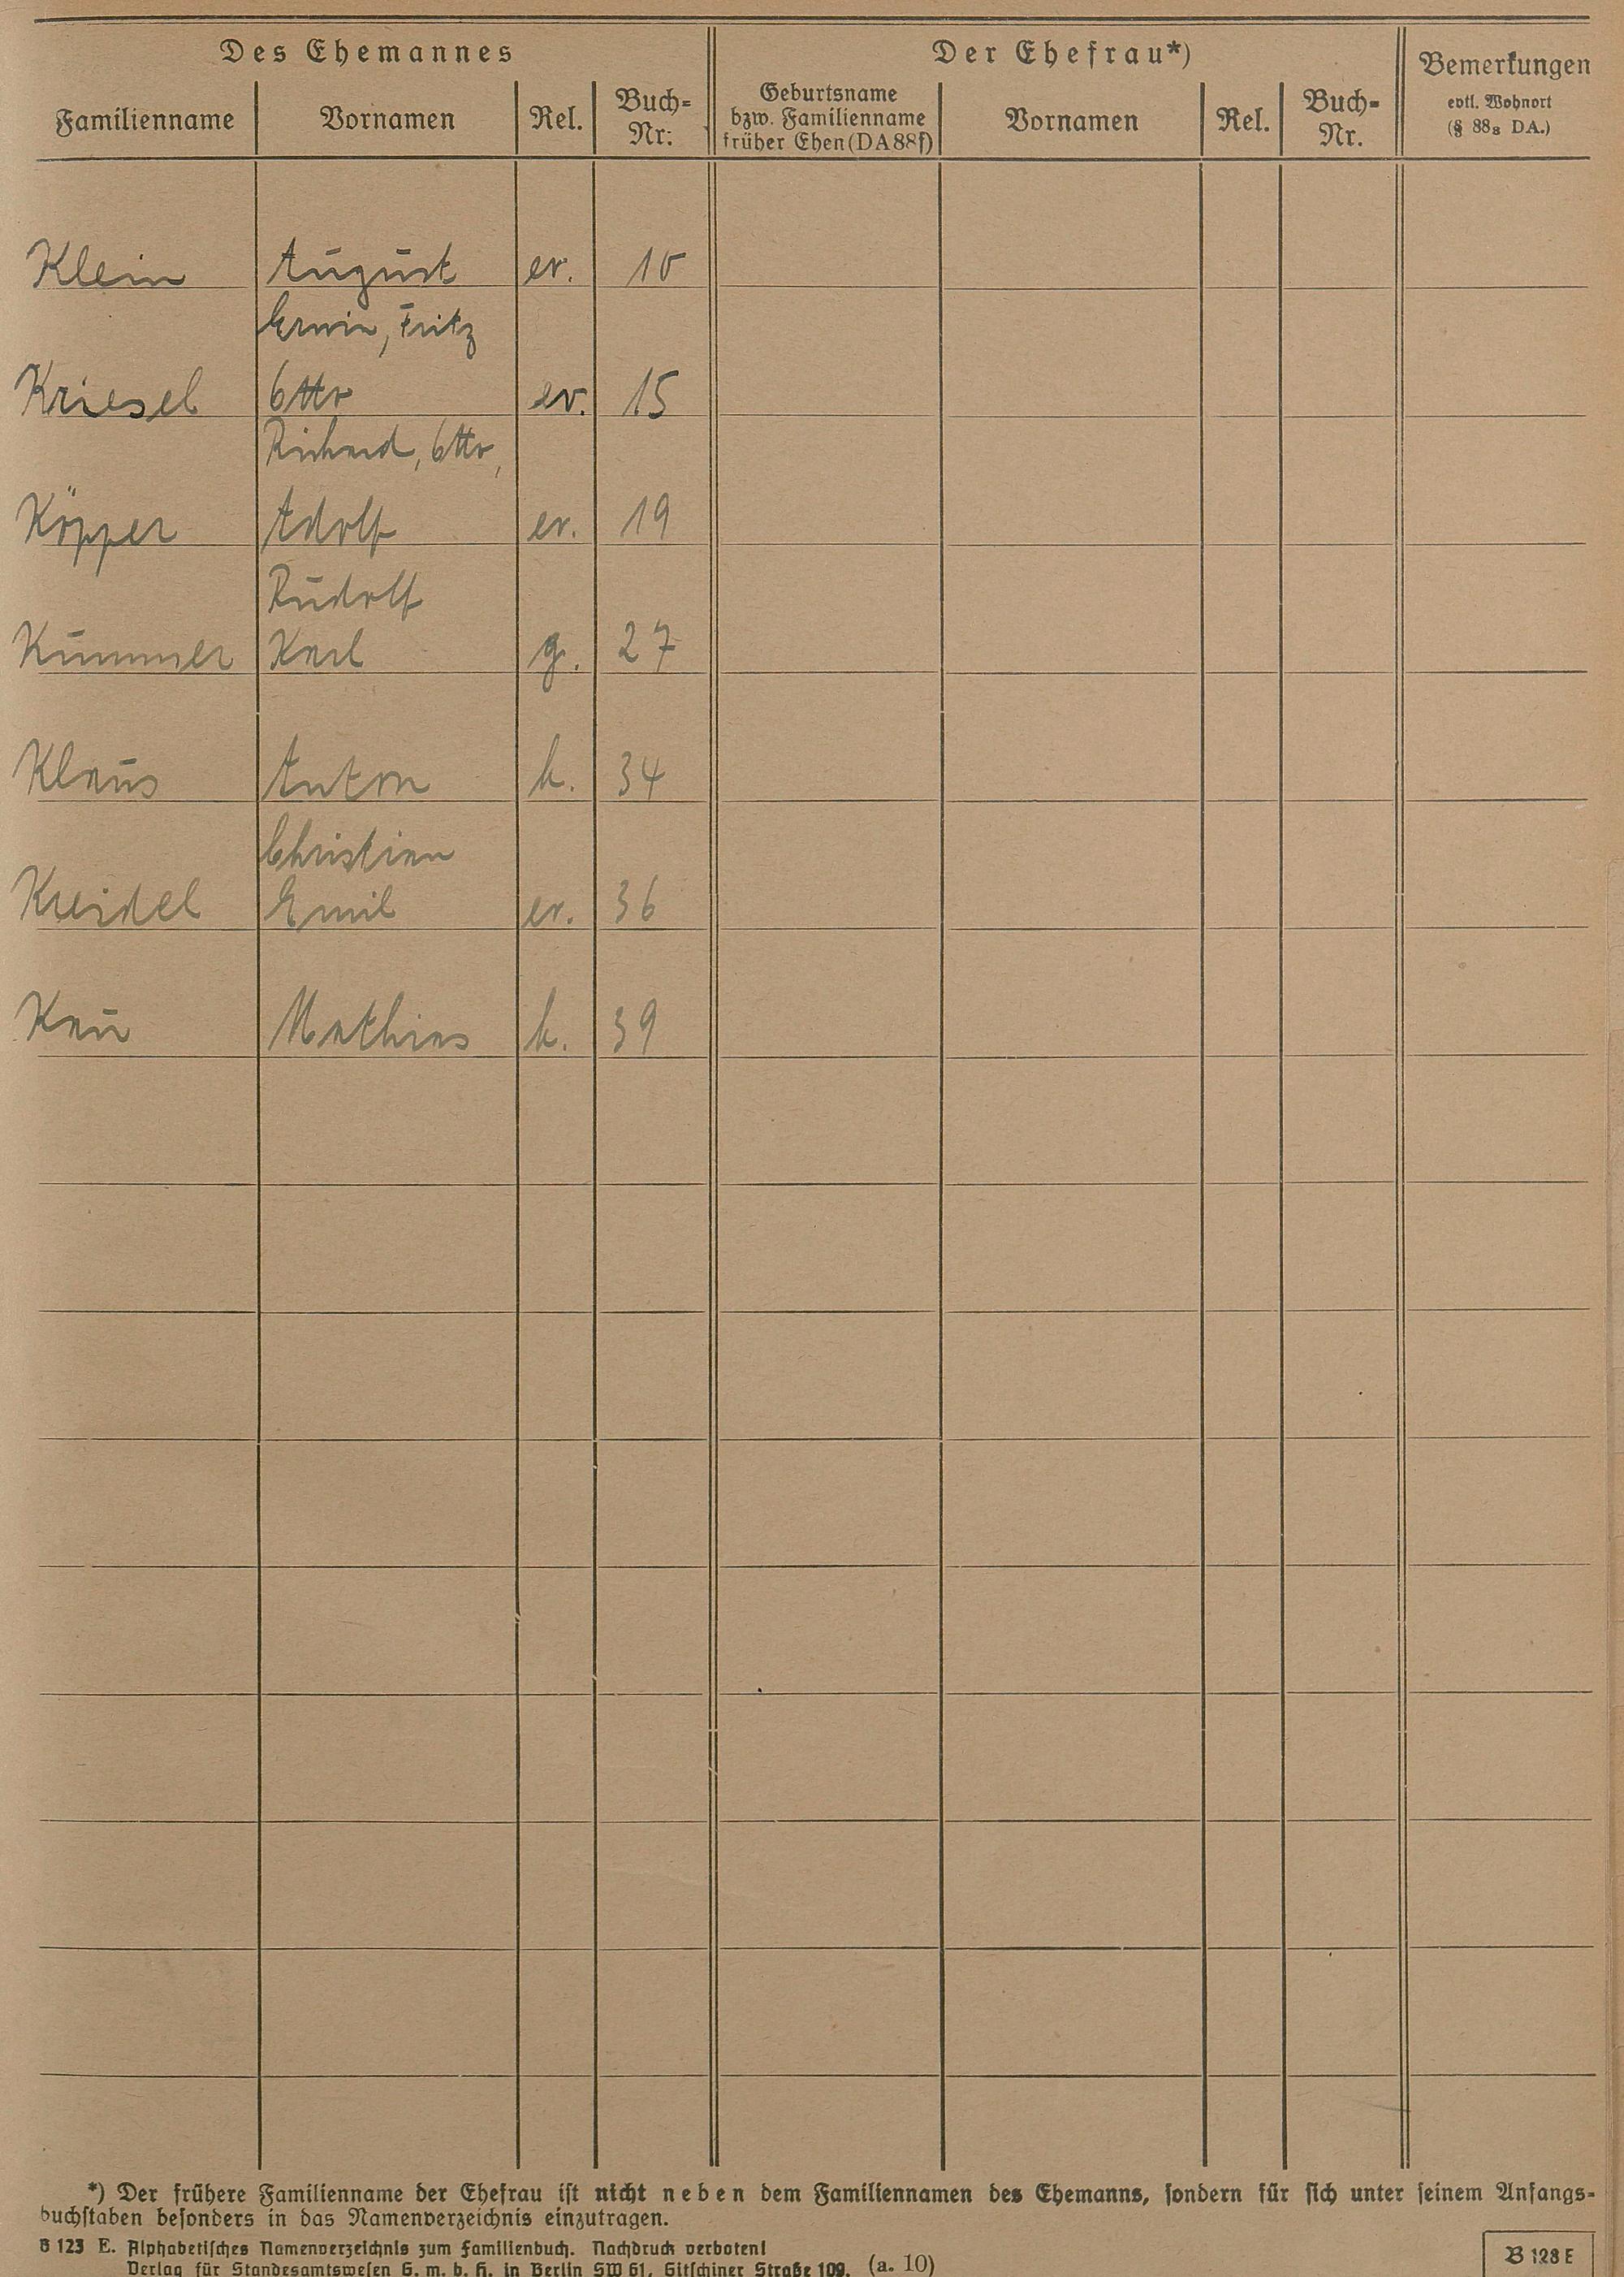 Des Ehemannes Der Ehefrau*) Bemerkungen
Familienname Vornamen Rel. Buch=Nr: Geburtsname bzw. Familienname früher Ehen (DA 88f) Vornamen Rel. Buch=Nr. evtl. Wohnort (§ 88₃ DA.)
Klein August ev. 10
Erwin, Fritz
Kriesel Otto ev. 15
Richard, Otto,
Köpper Adolf ev. 19
Rudolf
Kummer Karl g. 27
Klaus Anton k. 34
Christian
Kreidel Emil ev. 36
Kau Mathias k. 39
*) Der frühere Familienname der Ehefrau ist nicht neben dem Familiennamen des Ehemanns, sondern für sich unter seinem Anfangs=
buchstaben besonders in das Namenverzeichnis einzutragen.
B 123 E. Alphabetisches Namenverzeichnis zum Familienbuch. Nachdruck verboten!
Verlag für Standesamtswesen G. m. b. H. in Berlin SW 61, Gitschiner Straße 109. (a. 10)
B 123 E